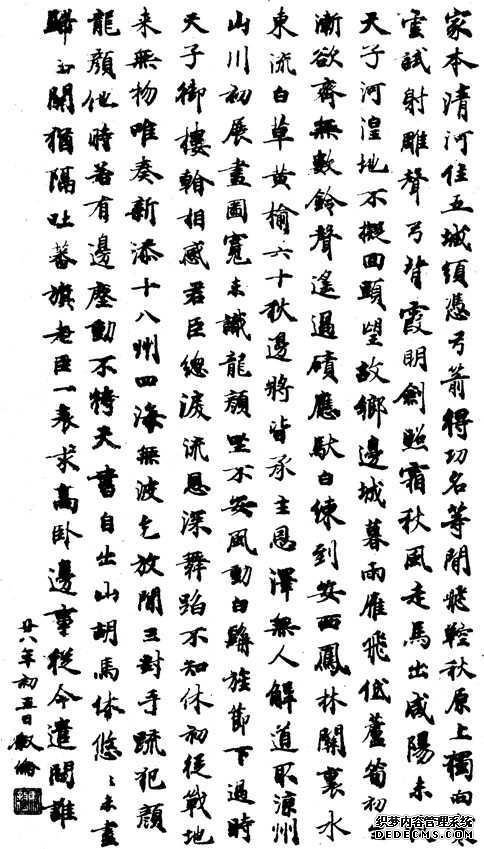 家本清河住五城須憑弓箭得功名等閒飛鞚秋原上獨向寒
雲試射雕聲弓背霞明劍照霜秋風走馬出咸陽未收
天子河湟地不擬回頭望故鄉邊城暮雨雁飛低蘆筍初生
漸欲齊無數鈴聲遙過磧應馱白練到安西鳳林關裏水
東流白草黃榆六十秋邊將皆承主恩澤無人解道取涼州
山川初展畫圖寬未識龍顏坐不安風動白髯旌節下過時
天子御樓相感君臣總淚流恩深舞蹈不知休初從戰地
來無物唯奏新添十八州四海無波乞放閒三封手疏犯顏
龍顏他時若有邊塵動不待天書自出山胡馬悠〻未盡
歸玉關猶隔吐蕃旗老臣一表求高臥邊事從今遣問誰
廿八年初五日叙倫
织梦内容管理系统
DEDECMS.COM